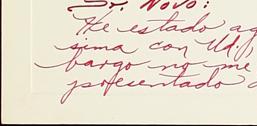 Sr. Novo:
He estado ag
sima con Ud.,
bargo no me
presentado a